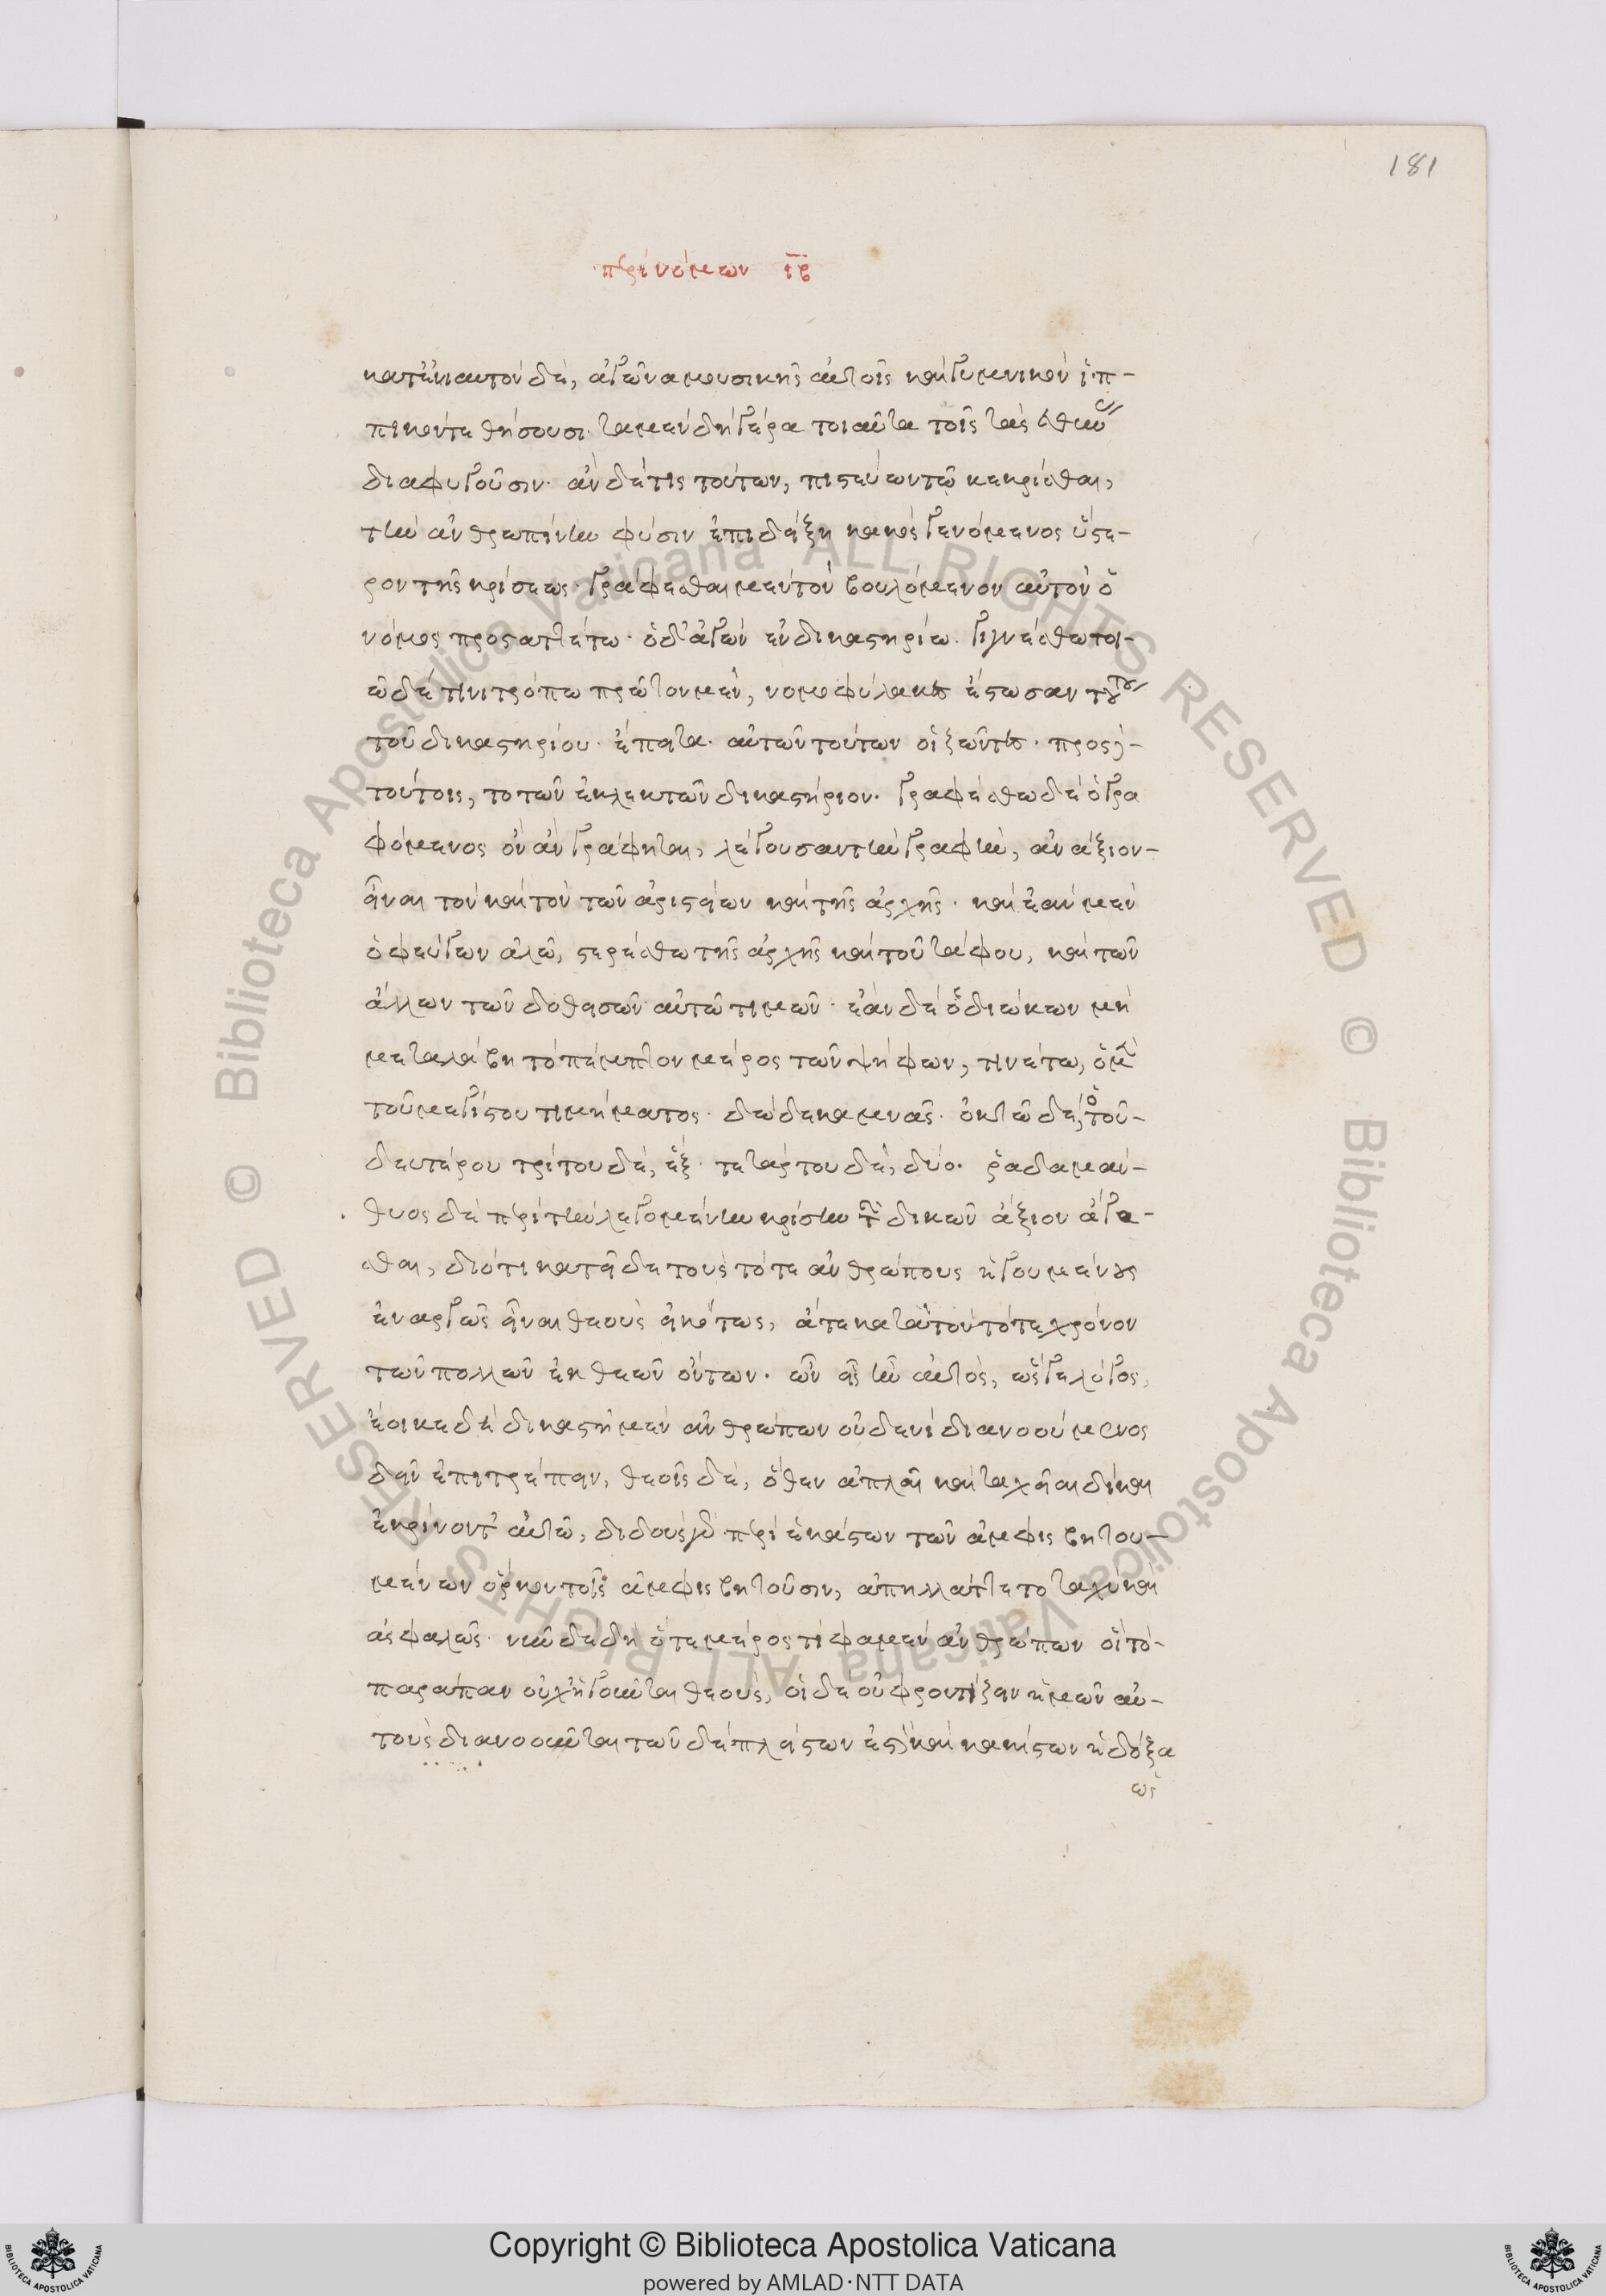 181
περὶ νόμων ιβ
κατ' ἐνιαυτὸν δὲ, ἀγῶνα μουσικῆς αὐτοῖς καὶ γυμνικὸν ἱπ-
πικόν τε θήσουσι· τὰ μὲν δὴ γέρα τοιαῦτα τοῖς τὰς εὐθύνας
διαφυγοῦσιν· ἂν δέ τις τούτων, πιστεύων τῷ κεκρίσθαι,
τὴν ἀνθρωπίνην φύσιν ἐπιδείξῃ κακὸς γενόμενος ὕστε-
ρον τῆς κρίσεως· γράφεσθαι μὲν τὸν βουλόμενον αὐτὸν ὁ
νόμος προσταττέτω· ὁ δ' ἀγὼν ἐν δικαστηρίω· γιγνέσθω τοι-
ῶδέ τινι τρόπω πρῶτον μὲν, νομοφύλακες ἔστωσαν τούτου
τοῦ δικαστηρίου· ἔπειτα· αὐτῶν τούτων οἱ ζῶντες· πρὸς δὲ
τούτοις, τὸ τῶν ἐκλεκτῶν δικαστήριον· γραφέσθω δὲ ὁ γρα
φόμενος ὃν ἂν γράφηται, λέγουσαν τὴν γραφὴν, ἀνάξιον
εἶναι τὸν καὶ τὸν τῶν ἀριστείων καὶ τῆς ἀρχῆς· καὶ ἐὰν μὲν
ὁ φεύγων ἁλῶ, στερέσθω τῆς ἀρχῆς καὶ τοῦ τάφου, καὶ τῶν
ἄλλων τῶν δοθεισῶν αὐτῶ τιμῶν· ἐὰν δὲ ὁ διώκων μὴ
μεταλάβη τὸ πέμπτον μέρος τῶν ψήφων, τινέτω, ὁ μὲν
τοῦ μεγίστου τιμήματος· δώδεκα μνᾶς· ὀκτὼ δὲ, ὁ τοῦ-
δευτέρου τρίτου δὲ, ἕξ· τετάρτου δὲ, δύο· ῥαδαμάν-
θυος δὲ περὶ τὴν λεγομένην κρίσιν τῶν δικῶν ἄξιον ἄγα-
σθαι, διότι κατεῖδε τοὺς τότε ἀνθρώπους ἡγουμένους
ἐναργῶς εἶναι θεοὺς εἰκότως, ἅτε κατὰ τὸν τότε χρόνον
τῶν πολλῶν ἐκ θεῶν ὄντων· ὧν εἷς ἦν αὐτὸς, ὥς γε λόγος,
ἔοικε δὴ δικαστῆ μὲν ἀνθρώπων οὐδενὶ διανοούμενος
δεῖν ἐπιτρέπειν, θεοῖς δὲ, ὅθεν ἁπλαῖ καὶ ταχεῖαι δίκαι
ἐκρίνοντ' αὐτῶ, διδοὺς γὰρ περὶ ἑκάστων τῶν ἀμφισβητου-
μένων ὅρκον τοῖς ἀμφισβητοῦσιν, ἀπηλλάττετο ταχὺ καὶ
ἀσφαλῶς· νῦν δὲ δὴ ὅτε μέρος τί φαμεν ἀνθρώπων οἳ τὸ-
παράπαν οὐχ ἡγοῦνται θεοὺς, οἱ δὲ οὐ φροντίζειν ἡμῶν αὐ-
τοὺς διανοοῦνται τῶν δὲ πλείστων ἐστὶ καὶ κακίστων ἡ δόξα
ὡς